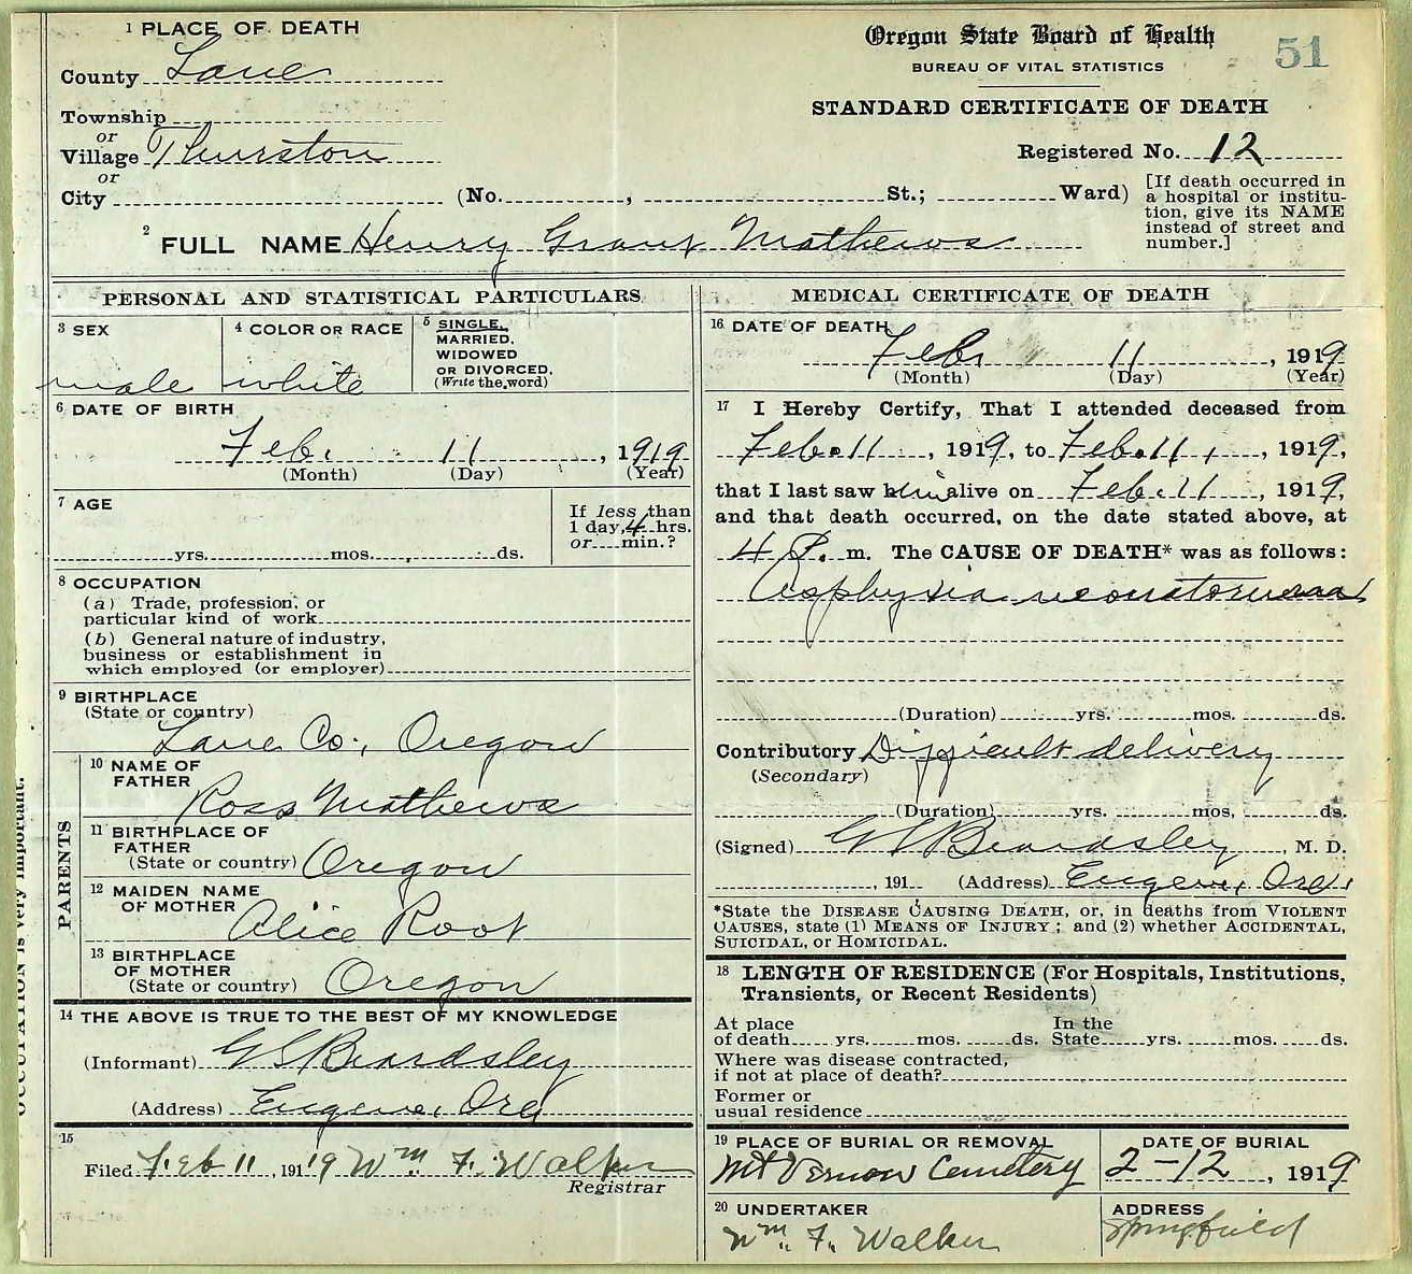 1 PLACE OF DEATH
County Lane
Township
or
Village Thurston
or
City (No. , St.; Ward)
Oregon State Board of Health
51
BUREAU OF VITAL STATISTICS
STANDARD CERTIFICATE OF DEATH
Registered No. 12
[If death occurred in
a hospital or institu-
tion, give its NAME
instead of street and
number.]
2 FULL NAME Henry Grant Mathews
PERSONAL AND STATISTICAL PARTICULARS
3 SEX
male
4 COLOR OR RACE
white
5 SINGLE,
MARRIED,
WIDOWED
OR DIVORCED,
(Write the word)
6 DATE OF BIRTH
Feb. 11, 1919
(Month) (Day) (Year)
7 AGE
yrs. mos. ds.
If less than
1 day, 4 hrs.
or min.?
8 OCCUPATION
(a) Trade, profession, or
particular kind of work
(b) General nature of industry,
business or establishment in
which employed (or employer)
9 BIRTHPLACE
(State or country)
Lane Co., Oregon
PARENTS
10 NAME OF
FATHER
Ross Mathews
11 BIRTHPLACE OF
FATHER
(State or country) Oregon
12 MAIDEN NAME
OF MOTHER
Alice Root
13 BIRTHPLACE
OF MOTHER
(State or country) Oregon
14 THE ABOVE IS TRUE TO THE BEST OF MY KNOWLEDGE
(Informant) G S Beardsley
(Address) Eugene, Ore
15
Filed Feb 11, 1919 Wm F. Walker
Registrar
OCCUPATION is very important.
MEDICAL CERTIFICATE OF DEATH
16 DATE OF DEATH
Feb. 11, 1919
(Month) (Day) (Year)
17 I Hereby Certify, That I attended deceased from
Feb. 11, 1919, to Feb. 11, 1919,
that I last saw him alive on Feb. 11, 1919,
and that death occurred, on the date stated above, at
4 P. m. The CAUSE OF DEATH* was as follows:
Asphyxia neonatorum
(Duration) yrs. mos. ds.
Contributory Difficult delivery
(Secondary)
(Duration) yrs. mos. ds.
(Signed) G S Beardsley, M. D.
, 191 (Address) Eugene, Ore.
*State the DISEASE CAUSING DEATH, or, in deaths from VIOLENT
CAUSES, state (1) MEANS OF INJURY; and (2) whether ACCIDENTAL,
SUICIDAL, or HOMICIDAL.
18 LENGTH OF RESIDENCE (For Hospitals, Institutions,
Transients, or Recent Residents)
At place In the
of death yrs. mos. ds. State yrs. mos. ds.
Where was disease contracted,
if not at place of death?
Former or
usual residence
19 PLACE OF BURIAL OR REMOVAL
Mt Vernon Cemetery
DATE OF BURIAL
2-12, 1919
20 UNDERTAKER
Wm. F. Walker
ADDRESS
Springfield